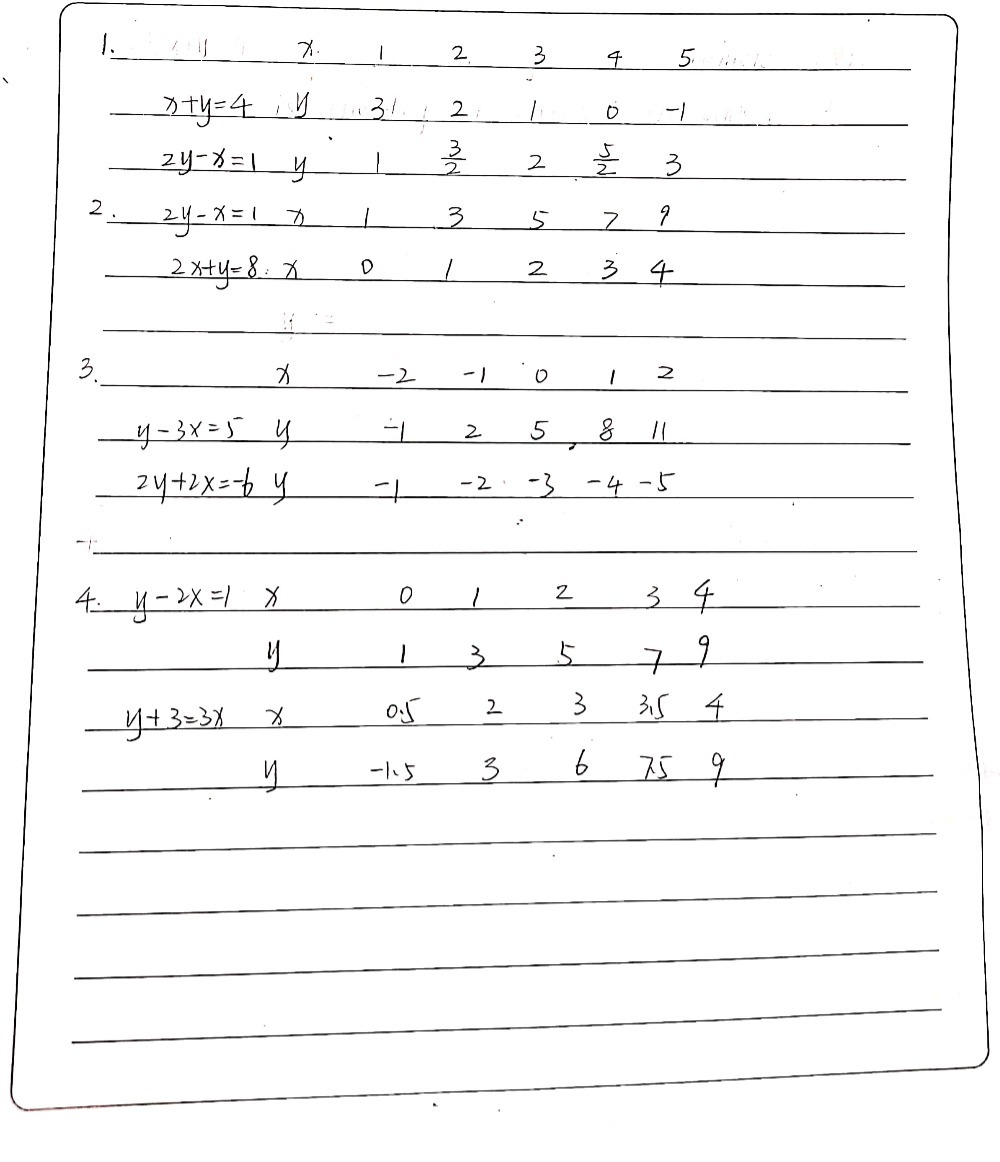 1. x 1 2 3 4 5
x+y=4 y 3 2 1 0 -1
2y-x=1 y 1 3/2 2 5/2 3
2. 2y-x=1 x 1 3 5 7 9
2x+y=8 x 0 1 2 3 4
3. x -2 -1 0 1 2
y-3x=5 y -1 2 5 8 11
2y+2x=-6 y -1 -2 -3 -4 -5
4. y-2x=1 x 0 1 2 3 4
y 1 3 5 7 9
y+3=3x x 0.5 2 3 3.5 4
y -1.5 3 6 7.5 9